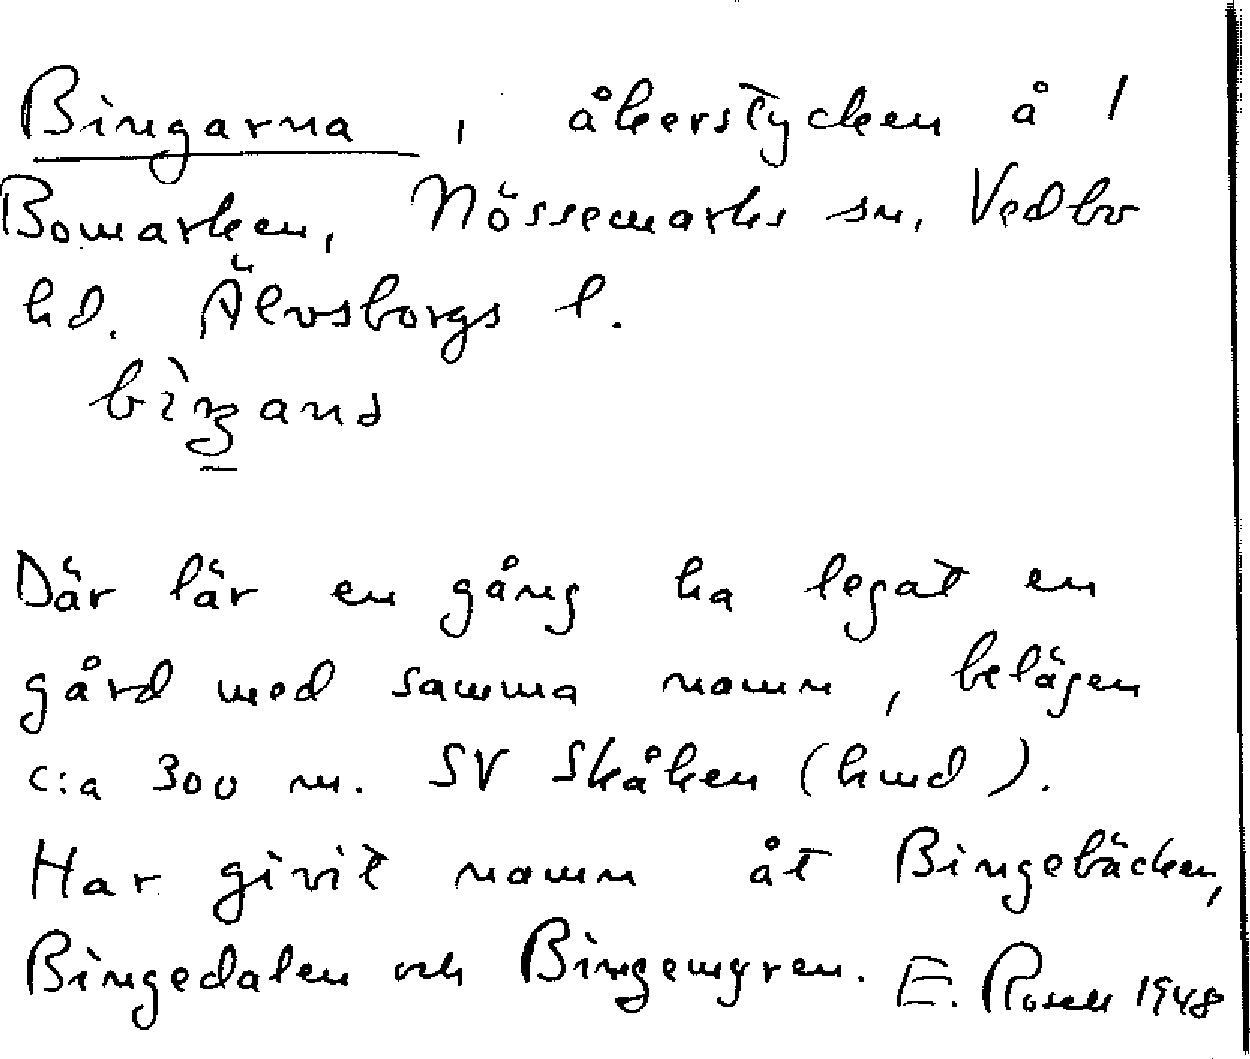 Bingarna, åkerstycken å /
Bomarken, Nössemarks sn, Vedbo
hd. Älvsborgs l.
Där lär en gång ha legat en
gård med samma namn, belägen
c:a 300 m. SV Skåken (hmd).
Har givit namn åt Bingebäcken,
Bingedalen och Bingemyren. E. Rosell 1948